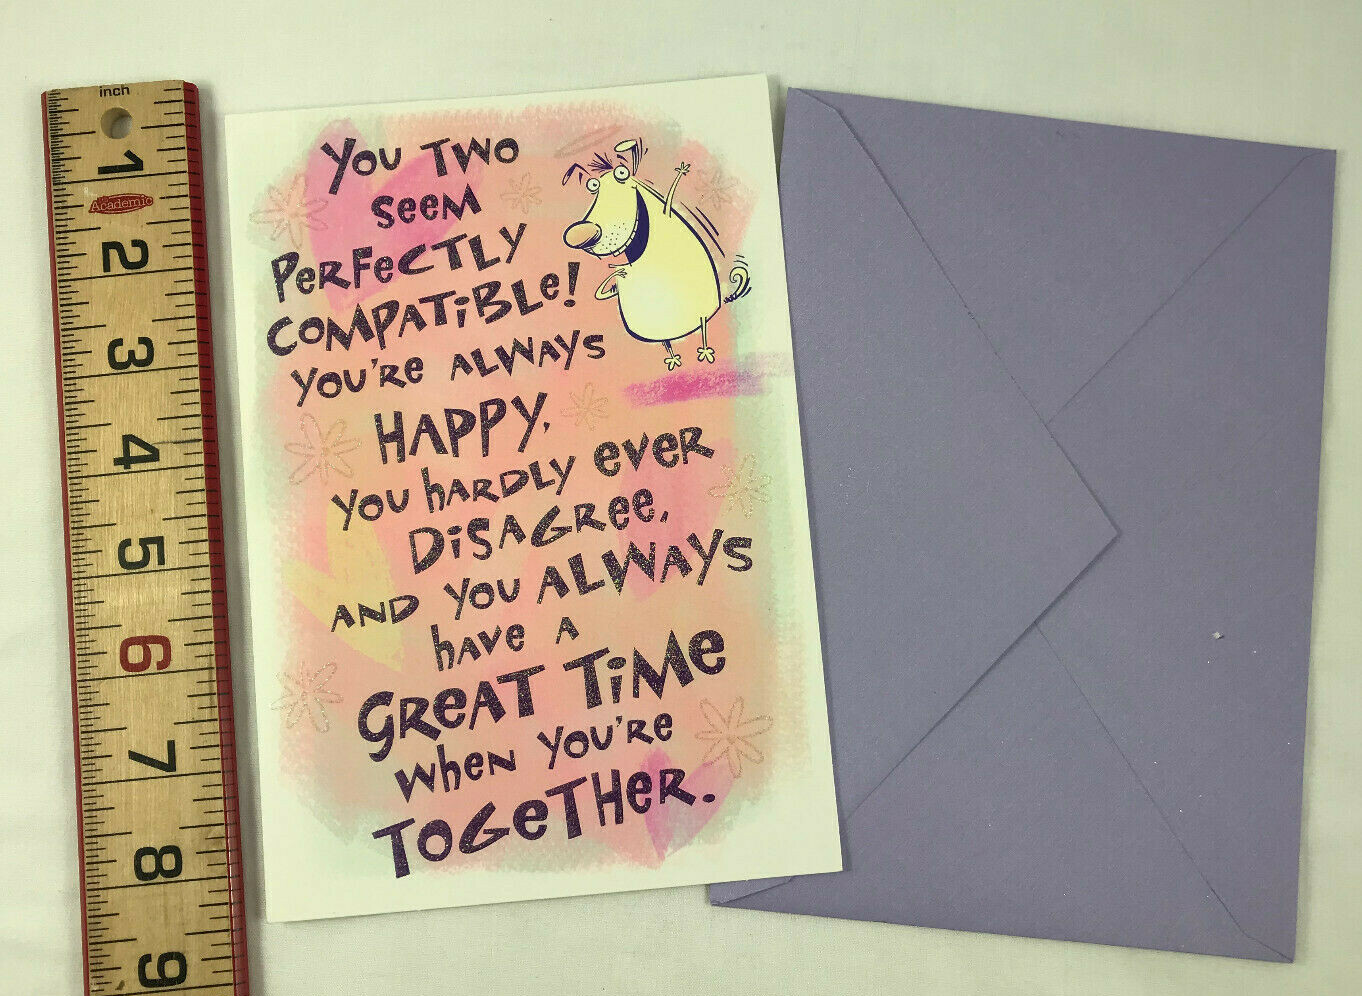 inch
1
Academic
2
3
4
5
6
7
8
9
You Two
Seem
Perfectly
Compatible!
You're Always
Happy,
You hardly ever
Disagree,
and you always
have a
Great Time
when you're
Together.